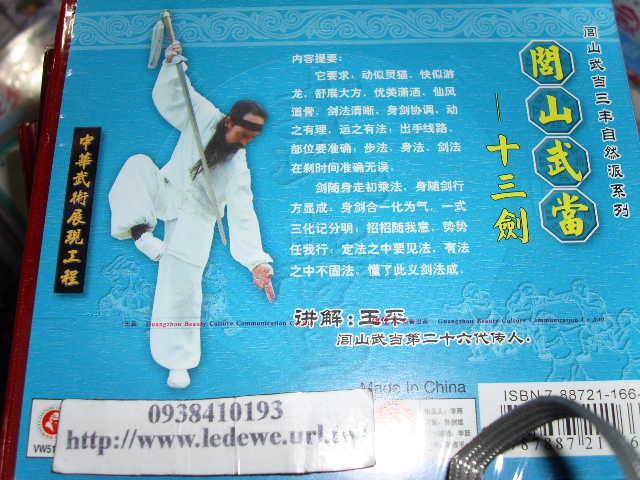 閭山武當三丰自然派系列
閭山武當
十三劍
中華武術展現工程
内容提要：
它要求，动似灵猫，快似游
龙，舒展大方，优美潇洒，仙风
道骨，剑法清晰，身剑协调，动
之有理，运之有法，出手线路，
部位要准确，步法、身法、剑法
在刹时间准确无误。
剑随身走初乘法，身随剑行
方显成，身剑合一化为气，一式
三化记分明，招招随我意，势势
任我行，定法之中要见法，有法
之中不固法，懂了此义剑法成。
讲解：王平
Guangzhou Beauty Culture Communication C
Guangzhou Beauty Culture Communication Co.Ltd
闾山武当第二十六代传人.
Made In China
ISBN 7-88721-166-
0938410193
http://www.ledewe.url.tw/
VW51